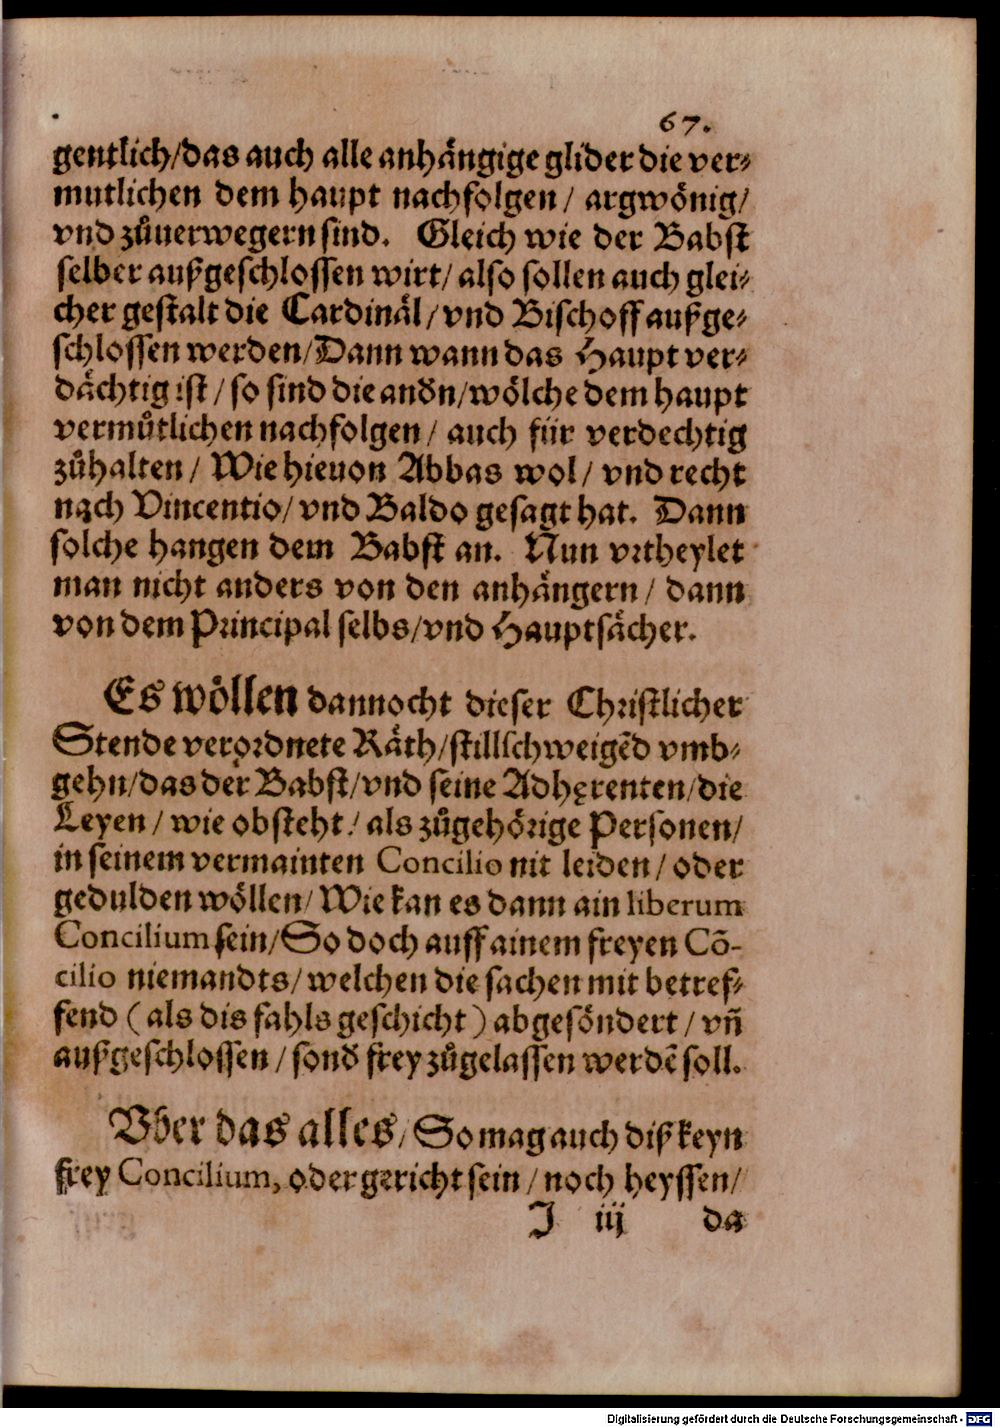 67.
gentlich/das auch alle anhängige glider die ver⸗
mutlichen dem haupt nachfolgen/ argwönig/
vnd zůuerwegern sind. Gleich wie der Babst
selber außgeschlossen wirt/ also sollen auch glei⸗
cher gestalt die Cardinäl/vnd Bischoff außge⸗
schlossen werden/Dann wann das Haupt ver⸗
dächtig ist/so sind die andn/wölche dem haupt
vermůtlichen nachfolgen/ auch für verdechtig
zůhalten/ Wie hieuon Abbas wol/ vnd recht
nach Vincentio/ vnd Baldo gesagt hat. Dann
solche hangen dem Babst an. Nun vrtheylet
man nicht anders von den anhängern/ dann
von dem Principal selbs/vnd Hauptsächer.
Es wöllen dannocht dieser Christlicher
Stende verordnete Räth/stillschweigēd vmb⸗
gehn/das der Babst/vnd seine Adhęrenten/die
Leyen/ wie obsteht/ als zůgehörige Personen/
in seinem vermainten Concilio nit leiden/ oder
gedulden wöllen/ Wie kan es dann ain liberum
Concilium sein/So doch auff ainem freyen Cō-
cilio niemandts/ welchen die sachen mit betref⸗
fend (als dis fahls geschicht) abgesöndert/ vñ
außgeschlossen/ sond frey zůgelassen werdē soll.
Vber das alles/So mag auch diß keyn
frey Concilium, oder gericht sein/ noch heyssen/
J iij da
Digitalisierung gefördert durch die Deutsche Forschungsgemeinschaft - DFG